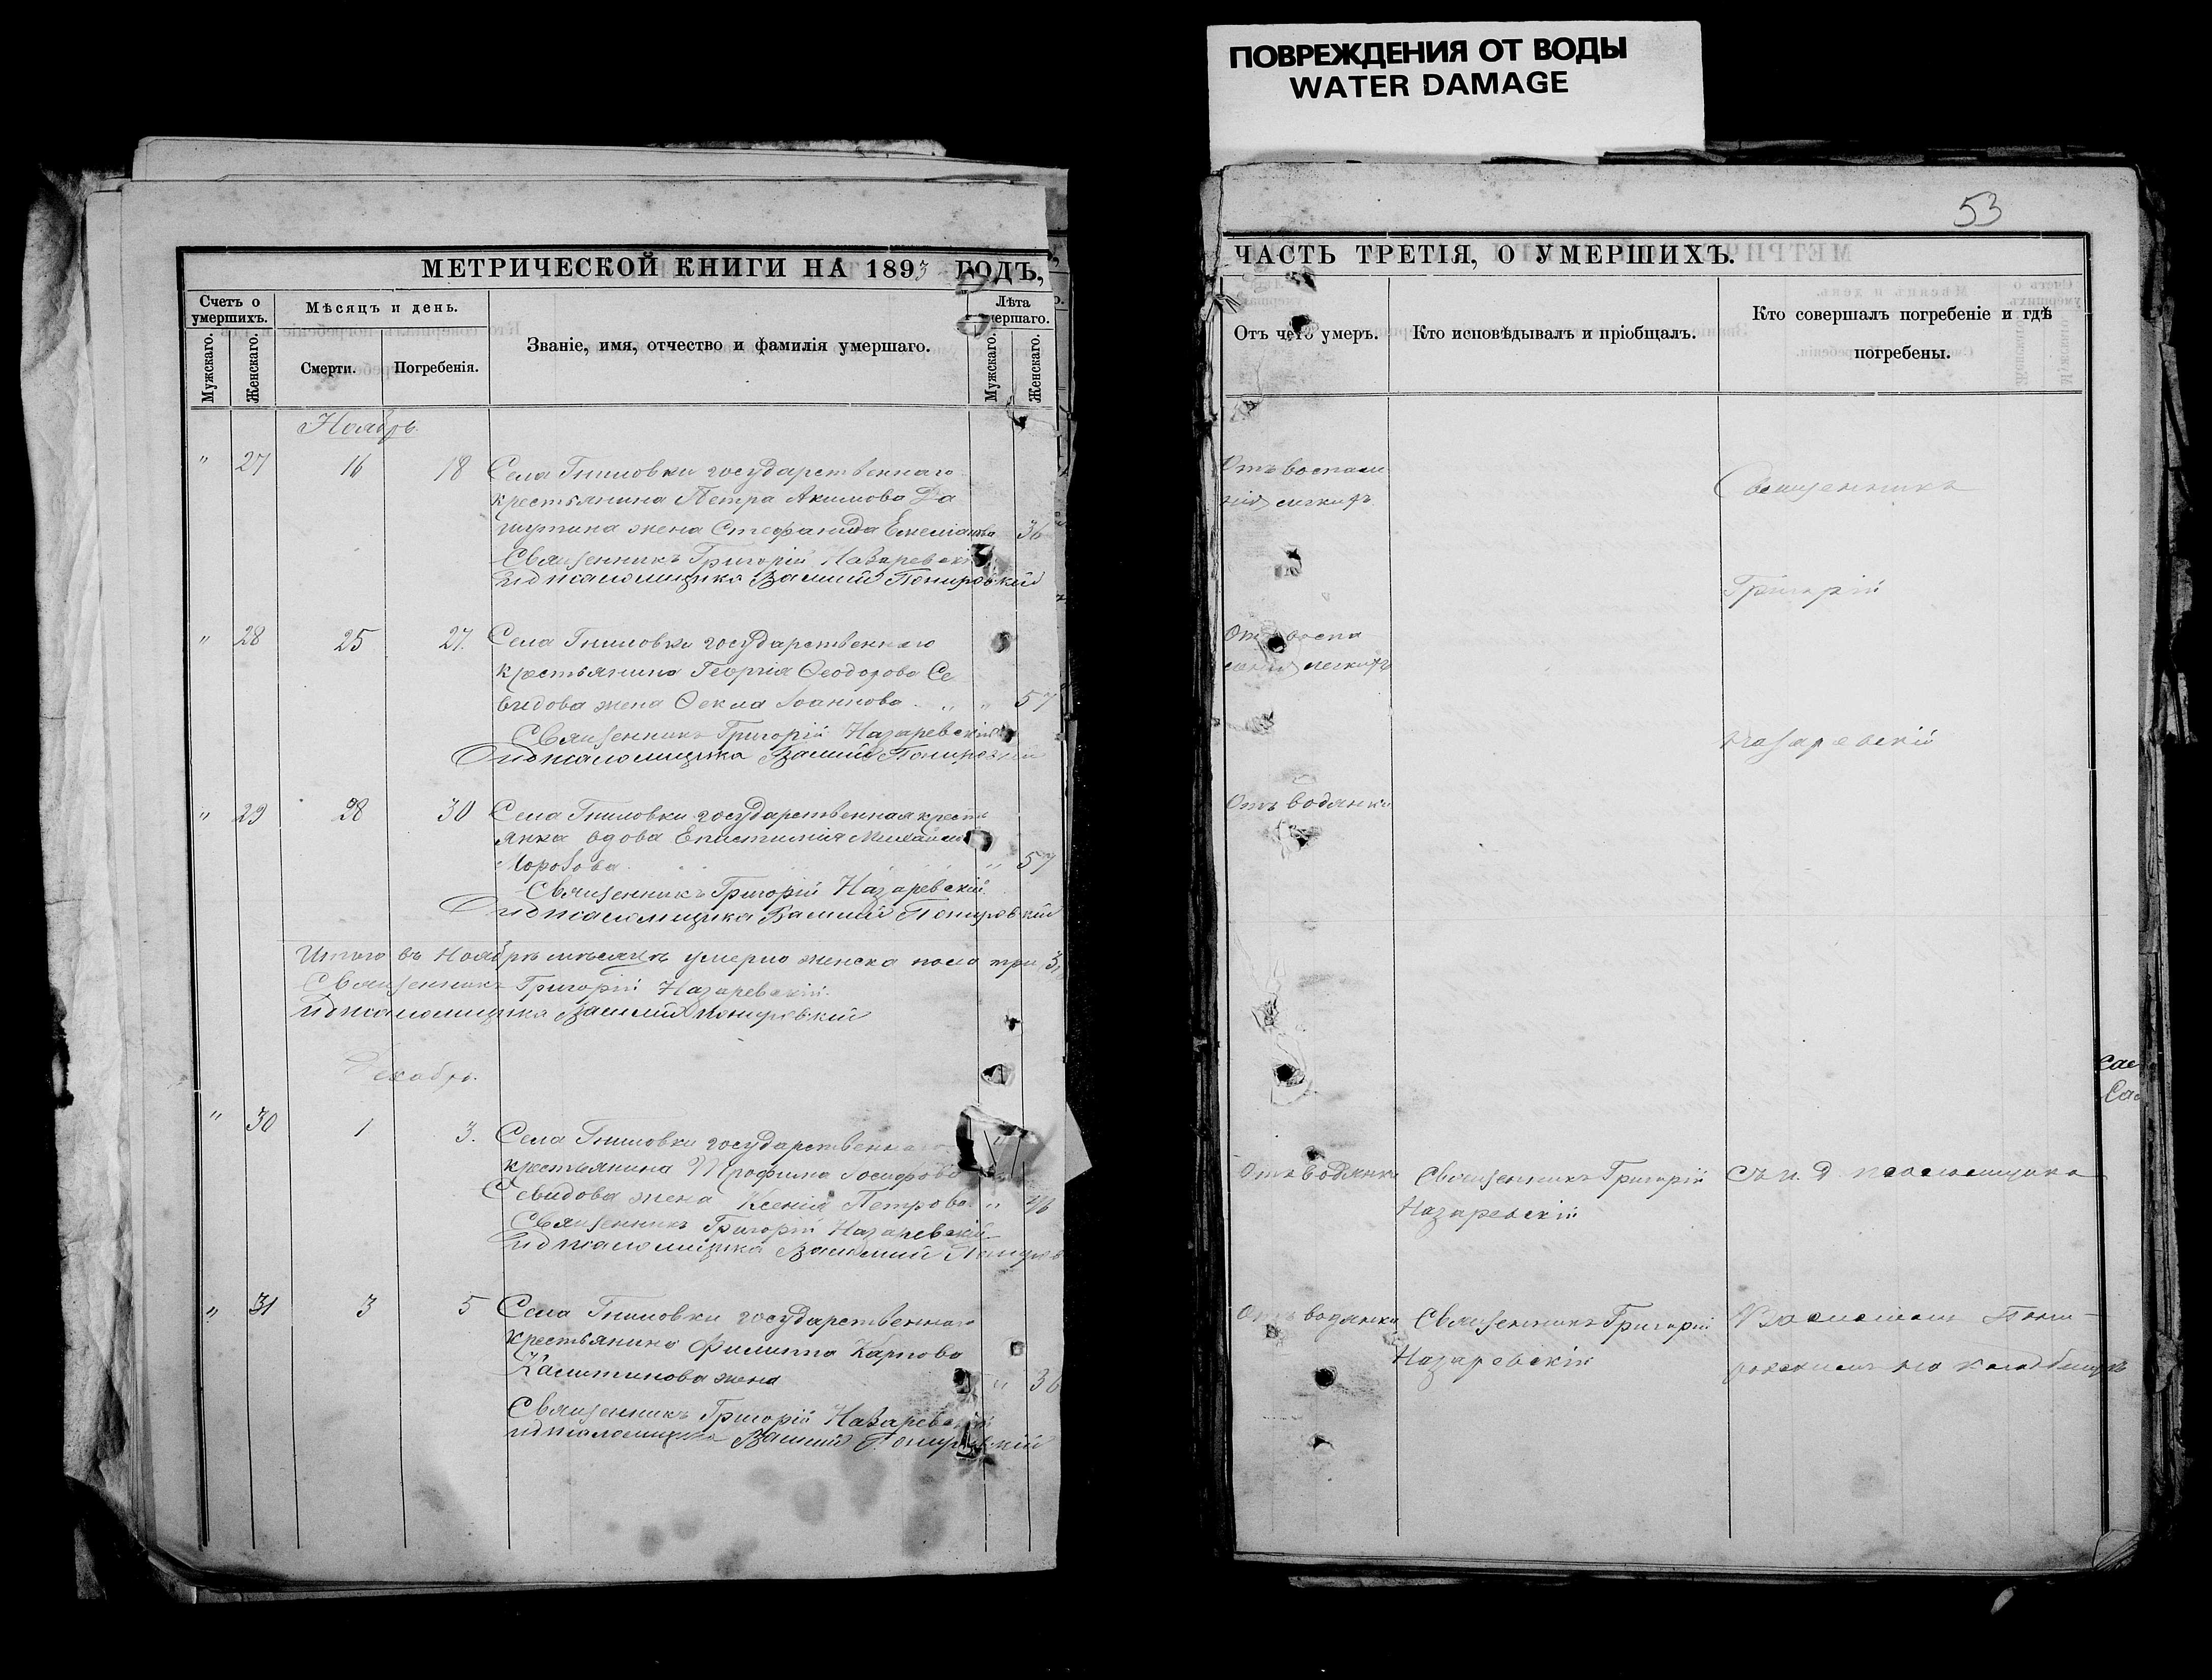 ПОВРЕЖДЕНИЯ ОТ ВОДЫ
WATER DAMAGE
МЕТРИЧЕСКОЙ КНИГИ НА 1893 ГОДЪ,
Счетъ о умершихъ.
Мужскаго.
Женскаго.
Мѣсяцъ и день.
Смерти.
Погребенія.
Званіе, имя, отчество и фамилія умершаго.
Лѣта умершаго.
Мужскаго.
Женскаго.
Ноябрь.
" 27 16 18 Села Гниловки государственнаго
крестьянина Петра Акимова
жена Стефанида Емеліанова 36
Священникъ Григорій Назаревскій
И д псаломщика Василій Понировскій
" 28 25 27. Села Гниловки государственнаго
крестьянина Георгія Ѳеодорова Се
видова жена Ѳекла Іоаннова " " 57
Священникъ Григорій Назаревскій
И д псаломщика Василій Понировскій
" 29 28 30 Села Гниловки государственная кресть
янка вдова Епистимія Михайлова
Морозова " 57
Священникъ Григорій Назаревскій.
И д псаломщика Василій Понировскій
Итого въ Ноябрѣ мѣсяцѣ умерло женска пола три 3.
Священникъ Григорій Назаревскій.
И д псаломщика Василій Понировскій
Декабрь.
" 30 1 3. Села Гниловки государственнаго "
крестьянина Трофима Іосифова
Севидова жена Ксенія Петрова "
Священникъ Григорій Назаревскій
И д псаломщика Василій Пониров
" 31 3 5 Села Гниловки государственнаго
крестьянина Филиппа Карпова
жена "
Священникъ Григорій Назаревскій
И д псаломщика Василій Понировскій
53
ЧАСТЬ ТРЕТІЯ, О УМЕРШИХЪ.
Отъ чего умеръ.
Кто исповѣдывалъ и пріобщалъ.
Кто совершалъ погребеніе и гдѣ погребены.
Отъ воспале
нія легкихъ
Священникъ
Григорій
Отъ воспа
ленія легкихъ
Назаревскій
Отъ водянки
Отъ водянки Священникъ Григорій Съ и. д. псаломщика
Назаревскій
Отъ водянки Священникъ Григорій Василіемъ Пони-
Назаревскій ровскимъ на кладбищѣ